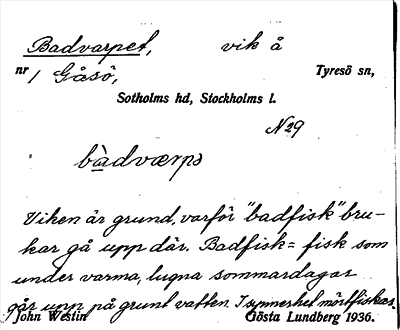 Badvarpet, vik å
nr 1 Gåsö, Tyresö sn,
Sotholms hd, Stockholms l.
N 29
bàdværpə
Viken är grund, varför "badfisk" bru-
kar gå upp där. Badfisk = fisk som
under varma, lugna sommardagar
går upp på grunt vatten. I synnerhet mörtfiskar.
John Westin Gösta Lundberg 1936.